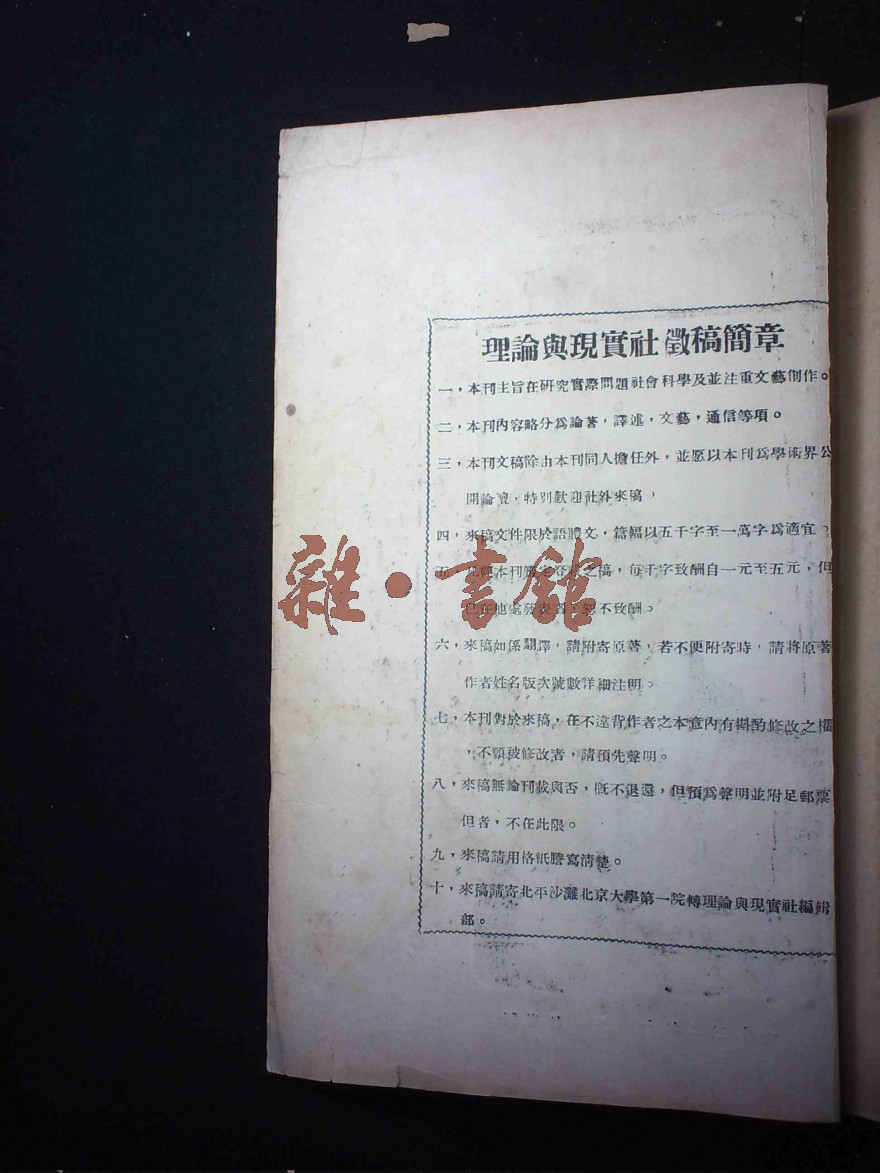 理論與現實社徵稿簡章
一，本刊主旨在研究實際問題社會科學及並注重文藝創作。
二，本刊內容略分爲論著，譯述，文藝，通信等項。
三，本刊文稿除由本刊同人擔任外，並愿以本刊爲學術界公
開論壇，特別歡迎社外來稿，
四，來稿文件限於語體文，篇幅以五千字至一萬字爲適宜。
五，凡經本刊之稿，每千字致酬自一元至五元，但
已在他處發表者恕不致酬。
六，來稿如係翻譯，請附寄原著，若不便附寄時，請將原著
作者姓名版次號數詳細注明。
七，本刊對於來稿，在不違背作者之本意內有斟酌修改之權
，不願被修改者，請預先聲明。
八，來稿無論刊載與否，槪不退還，但預爲聲明並附足郵票
但者，不在此限。
九，來稿請用格紙謄寫清楚。
十，來稿請寄北平沙灘北京大學第一院轉理論與現實社編輯
部。
雜·書館